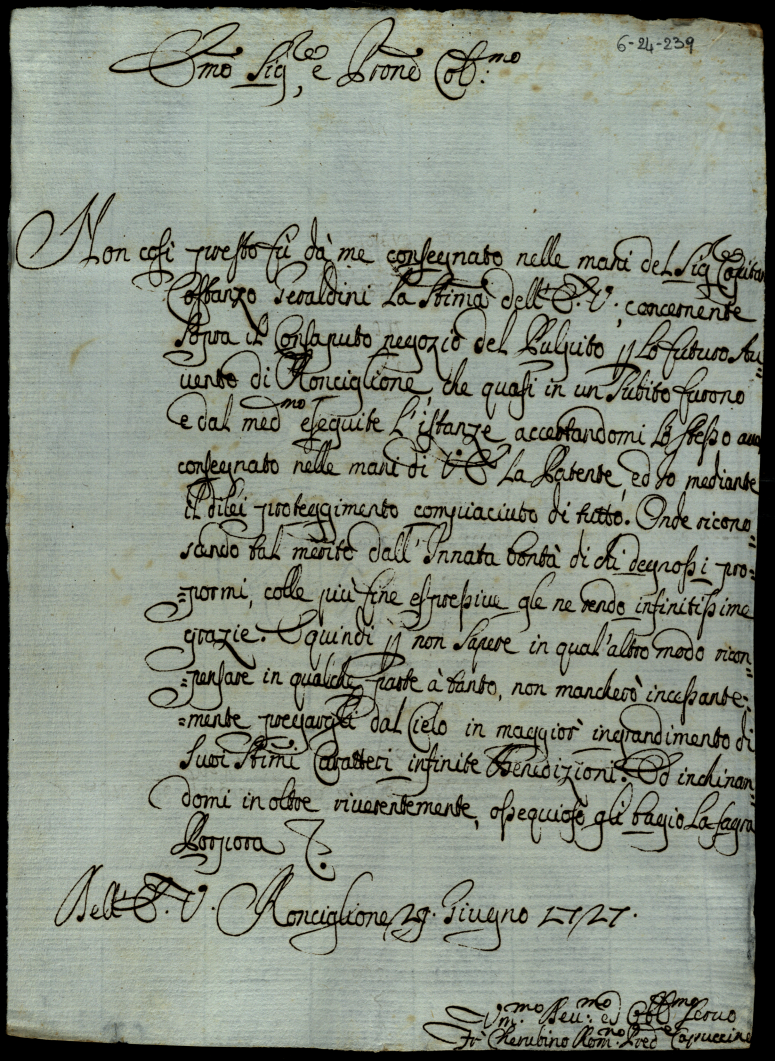 6-24-239
Emo Sig.re e Prone Col.mo
Non così presto fù dà me consegnato nelle mani del Sig.r Capitan
Costanzo Geraldini la Stima dell'E. V., concernente
sopra il Consaputo negozio del Pulpito p lo futuro Au=
uento di Ronciglione, che quasi in un subito furono
e dal med.mo eseguite l'istanze accertandomi lo stesso auer
consegnato nelle mani di V. E. la Patente, ed io mediante
il dilei proteggimento compiaciuto di tutto. Onde ricono=
scendo tal merito dall'Innata bontà di chi degnossi pro=
=pormi, colle più fine espressiue gle ne rendo infinitissime
grazie. E quindi p non sapere in qual'altro modo ricom=
=pensare in qualche parte à tanto, non mancherò incessante=
=mente pregargli dal Cielo in maggior ingrandimento di
Suoi Stimi Caratteri infinite Benedizioni. Ed inchinan=
domi in oltre riuerentemente, ossequioso gli bagio la sagra
Porpora
Dell'E. V. Ronciglione 29. Giugno 1727.
Vm.mo Deu.mo ed Obb.mo Seruo
Fr Cherubino Rom.no Pred.e Capuccino